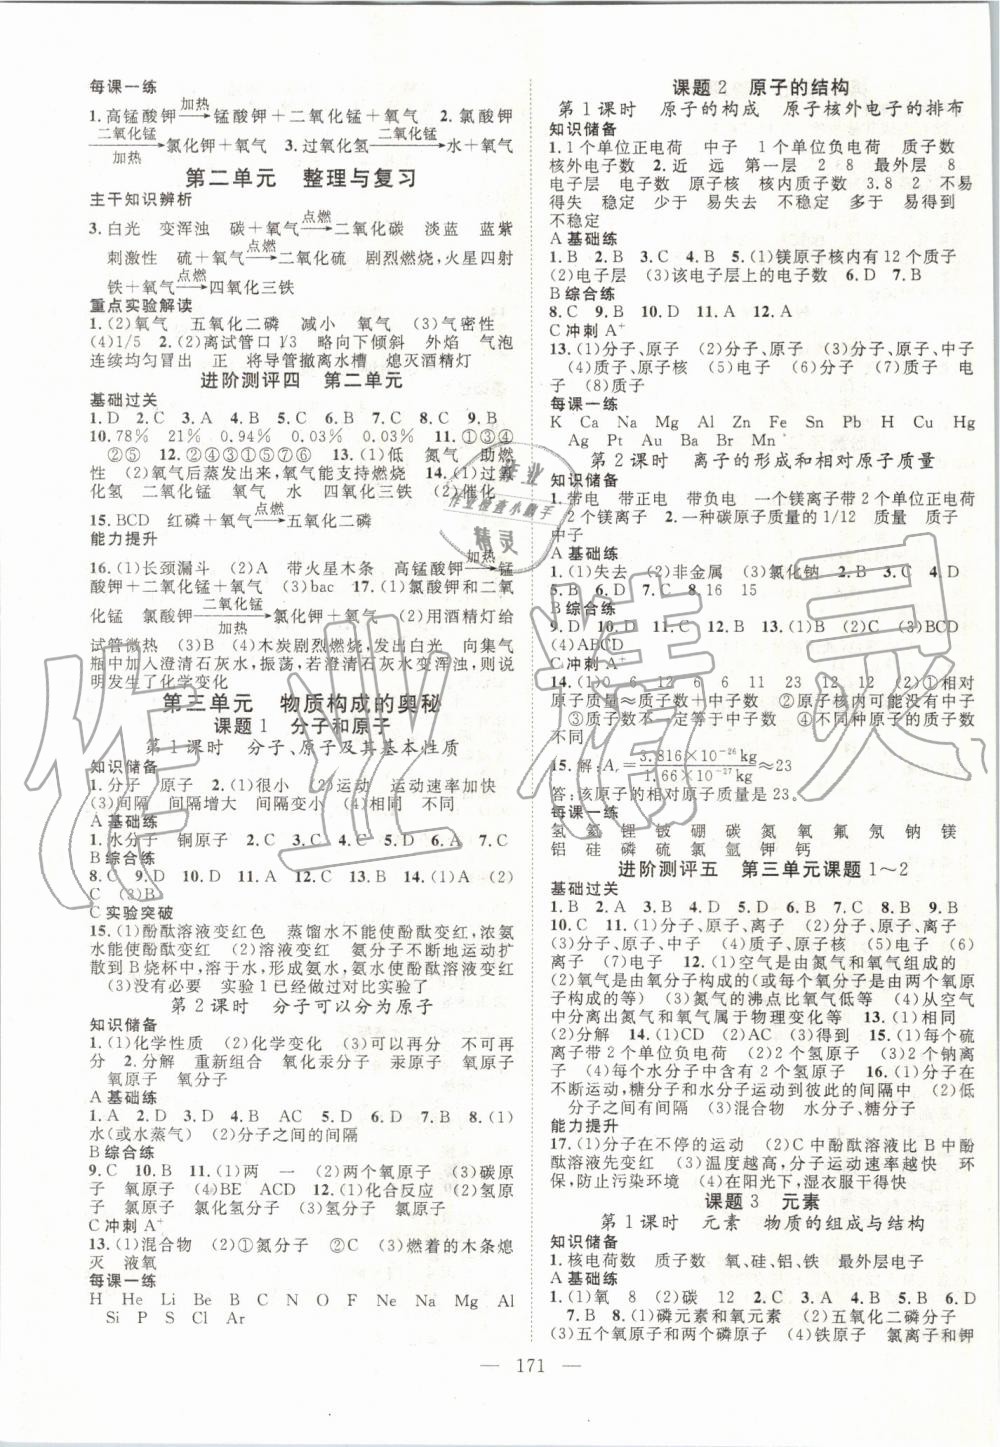 每课一练
1.高锰酸钾 加热→ 锰酸钾＋二氧化锰＋氧气　2.氯酸钾
二氧化锰 加热→ 氯化钾＋氧气　3.过氧化氢 二氧化锰→ 水＋氧气
第二单元　整理与复习
主干知识辨析
3.白光　变浑浊　碳＋氧气 点燃→ 二氧化碳　淡蓝　蓝紫
刺激性　硫＋氧气 点燃→ 二氧化硫　剧烈燃烧,火星四射
铁＋氧气 点燃→ 四氧化三铁
重点实验解读
1.(2)氧气　五氧化二磷　减小　氧气　(3)气密性
(4)1/5　2.(2)离试管口 1/3　略向下倾斜　外焰　气泡
连续均匀冒出　正　将导管撤离水槽　熄灭酒精灯
进阶测评四　第二单元
基础过关
1.D　2.C　3.A　4.B　5.C　6.B　7.C　8.C　9.B
10.78%　21%　0.94%　0.03%　0.03%　11.①③④
②⑤　12.①③④⑤　②⑥　13.(1)低　氮气　助燃
性　(2)氧气后蒸发出来,氧气能支持燃烧　14.(1)过氧
化氢　二氧化锰　氧气　水　四氧化三铁　(2)催化
15.BCD　红磷＋氧气 点燃→ 五氧化二磷
能力提升
16.(1)长颈漏斗　(2)A　带火星木条　高锰酸钾 加热→ 锰
酸钾＋二氧化锰＋氧气　(3)bac　17.(1)氯酸钾和二氧
化锰　氯酸钾 二氧化锰 加热→ 氯化钾＋氧气　(2)用酒精灯给
试管微热　(3)B　(4)木炭剧烈燃烧,发出白光　向集气
瓶中加入澄清石灰水,振荡,若澄清石灰水变浑浊,则说
明发生了化学变化
第三单元　物质构成的奥秘
课题1　分子和原子
第1课时　分子、原子及其基本性质
知识储备
1.分子　原子　2.(1)很小　(2)运动　运动速率加快
(3)间隔　间隔增大　间隔变小　(4)相同　不同
A 基础练
1.水分子　铜原子　2.C　3.C　4.B　5.A　6.A　7.C
B 综合练
8.C　9.D　10.D　11.A　12.B　13.B　14.(1)A　(2)
C　(3)B
C 实验突破
15.(1)酚酞溶液变红色　蒸馏水不能使酚酞变红,浓氨
水能使酚酞变红　(2)溶液变红　氨分子不断地运动扩
散到 B 烧杯中,溶于水,形成氨水,氨水使酚酞溶液变红
(3)没有必要　实验1已经做过对比实验了
第2课时　分子可以分为原子
知识储备
1.(1)化学性质　(2)化学变化　(3)可以再分　不可再
分　2.分解　重新组合　氧化汞分子　汞原子　氧原子
氧原子　氧分子
A 基础练
1.A　2.D　3.D　4.B　AC　5.D　6.D　7.B　8.(1)
水(或水蒸气)　(2)分子之间的间隔
B 综合练
9.C　10.B　11.(1)两　一　(2)两个氧原子　(3)碳原
子　氧原子　(4)BE　ACD　12.(1)化合反应　(2)氢原
子　氯原子　氯化氢分子　(3)氢原子　氯原子
C 冲刺 A＋
13.(1)混合物　(2)①氮分子　②C　(3)燃着的木条熄
灭　液氧
每课一练
H　He　Li　Be　B　C　N　O　F　Ne　Na　Mg　Al
Si　P　S　Cl　Ar
课题2　原子的结构
第1课时　原子的构成　原子核外电子的排布
知识储备
1.1个单位正电荷　中子　1个单位负电荷　质子数
核外电子数　2.近　远　第一层　2　8　最外层　8
电子层　电子数　原子核　核内质子数　3.8　2　不易
得失　稳定　少于　易失去　不稳定　多于　易得到
不稳定
A 基础练
1.B　2.B　3.C　4.B　5.(1)镁原子核内有12个质子
(2)电子层　(3)该电子层上的电子数　6.D　7.B
B 综合练
8.C　9.B　10.D　11.A　12.A
C 冲刺 A＋
13.(1)分子、原子　(2)原子　(3)分子、原子、中子
(4)质子、原子核　(5)电子　(6)分子　(7)质子　电
子　(8)质子
每课一练
K　Ca　Na　Mg　Al　Zn　Fe　Sn　Pb　H　Cu　Hg
Ag　Pt　Au　Br　Mn
第2课时　离子的形成和相对原子质量
知识储备
1.带电　带正电　带负电　一个镁离子带2个单位正电荷
2个镁离子　2.一种碳原子质量的1/12　质量　质子
中子
A 基础练
1.(1)失去　(2)非金属　(3)氯化钠　2.B　3.B　4.D
5.B　6.D　7.C　8.16　15
B 综合练
9.D　10.D　11.C　12.B　13.(1)B　(2)C　(3)BCD
(4)ABCD
C 冲刺 A＋
14.(1)0　6　12　6　6　11　12　12　12　(2)①相对
原子质量≈质子数＋中子数　②原子核内可能没有中
子　③质子数不一定等于中子数　④不同种原子的质子数
不同
15.解:Aᵣ＝3.816×10⁻²⁶kg/1.66×10⁻²⁷kg≈23
答:该原子的相对原子质量是23。
每课一练
氢　氦　锂　铍　硼　碳　氮　氧　氟　氖　钠　镁
铝　硅　磷　硫　氯　氩　钾　钙
进阶测评五　第三单元课题1～2
基础过关
1.B　2.A　3.B　4.D　5.A　6.C　7.B　8.B　9.B
10.C　11.(1)分子、原子、离子　(2)分子、原子、离子
(3)分子、原子、中子　(4)质子、原子核　(5)电子　(6)
离子　(7)质子　12.(1)空气是由氮气和氧气组成的
(2)氧气是由氧分子构成的(或每个氧分子是由两个氧
原子构成的等)　(3)氮气的沸点比氧气低等　(4)从空气
中分离出氮气和氧气属于物理变化等　13.(1)相同
(2)分解　14.(1)CD　(2)AC　(3)得到　15.(1)每个硫
离子带2个单位负电荷　(2)2个氢原子　(3)2个钠离
子　(4)每个水分子中含有2个氢原子　16.(1)分子在
不断运动,糖分子和水分子运动到彼此的间隔中　(2)低
分子之间有间隔　(3)混合物　水分子、糖分子
能力提升
17.(1)分子在不停的运动　(2)C中酚酞溶液比B中酚
酞溶液先变红　(3)温度越高,分子运动速率越快　环
保,防止污染环境　(4)在阳光下,湿衣服干得快
课题3　元素
第1课时　元素　物质的组成与结构
知识储备
1.核电荷数　质子数　氧、硅、铝、铁　最外层电子
A 基础练
1.(1)氧　8　(2)碳　12　2.C　3.C　4.B　5.C　6.D
7.B　8.(1)磷元素和氧元素　(2)五氧化二磷分子
(3)五个氧原子和两个磷原子　(4)铁原子　氯离子和钾
— 171 —